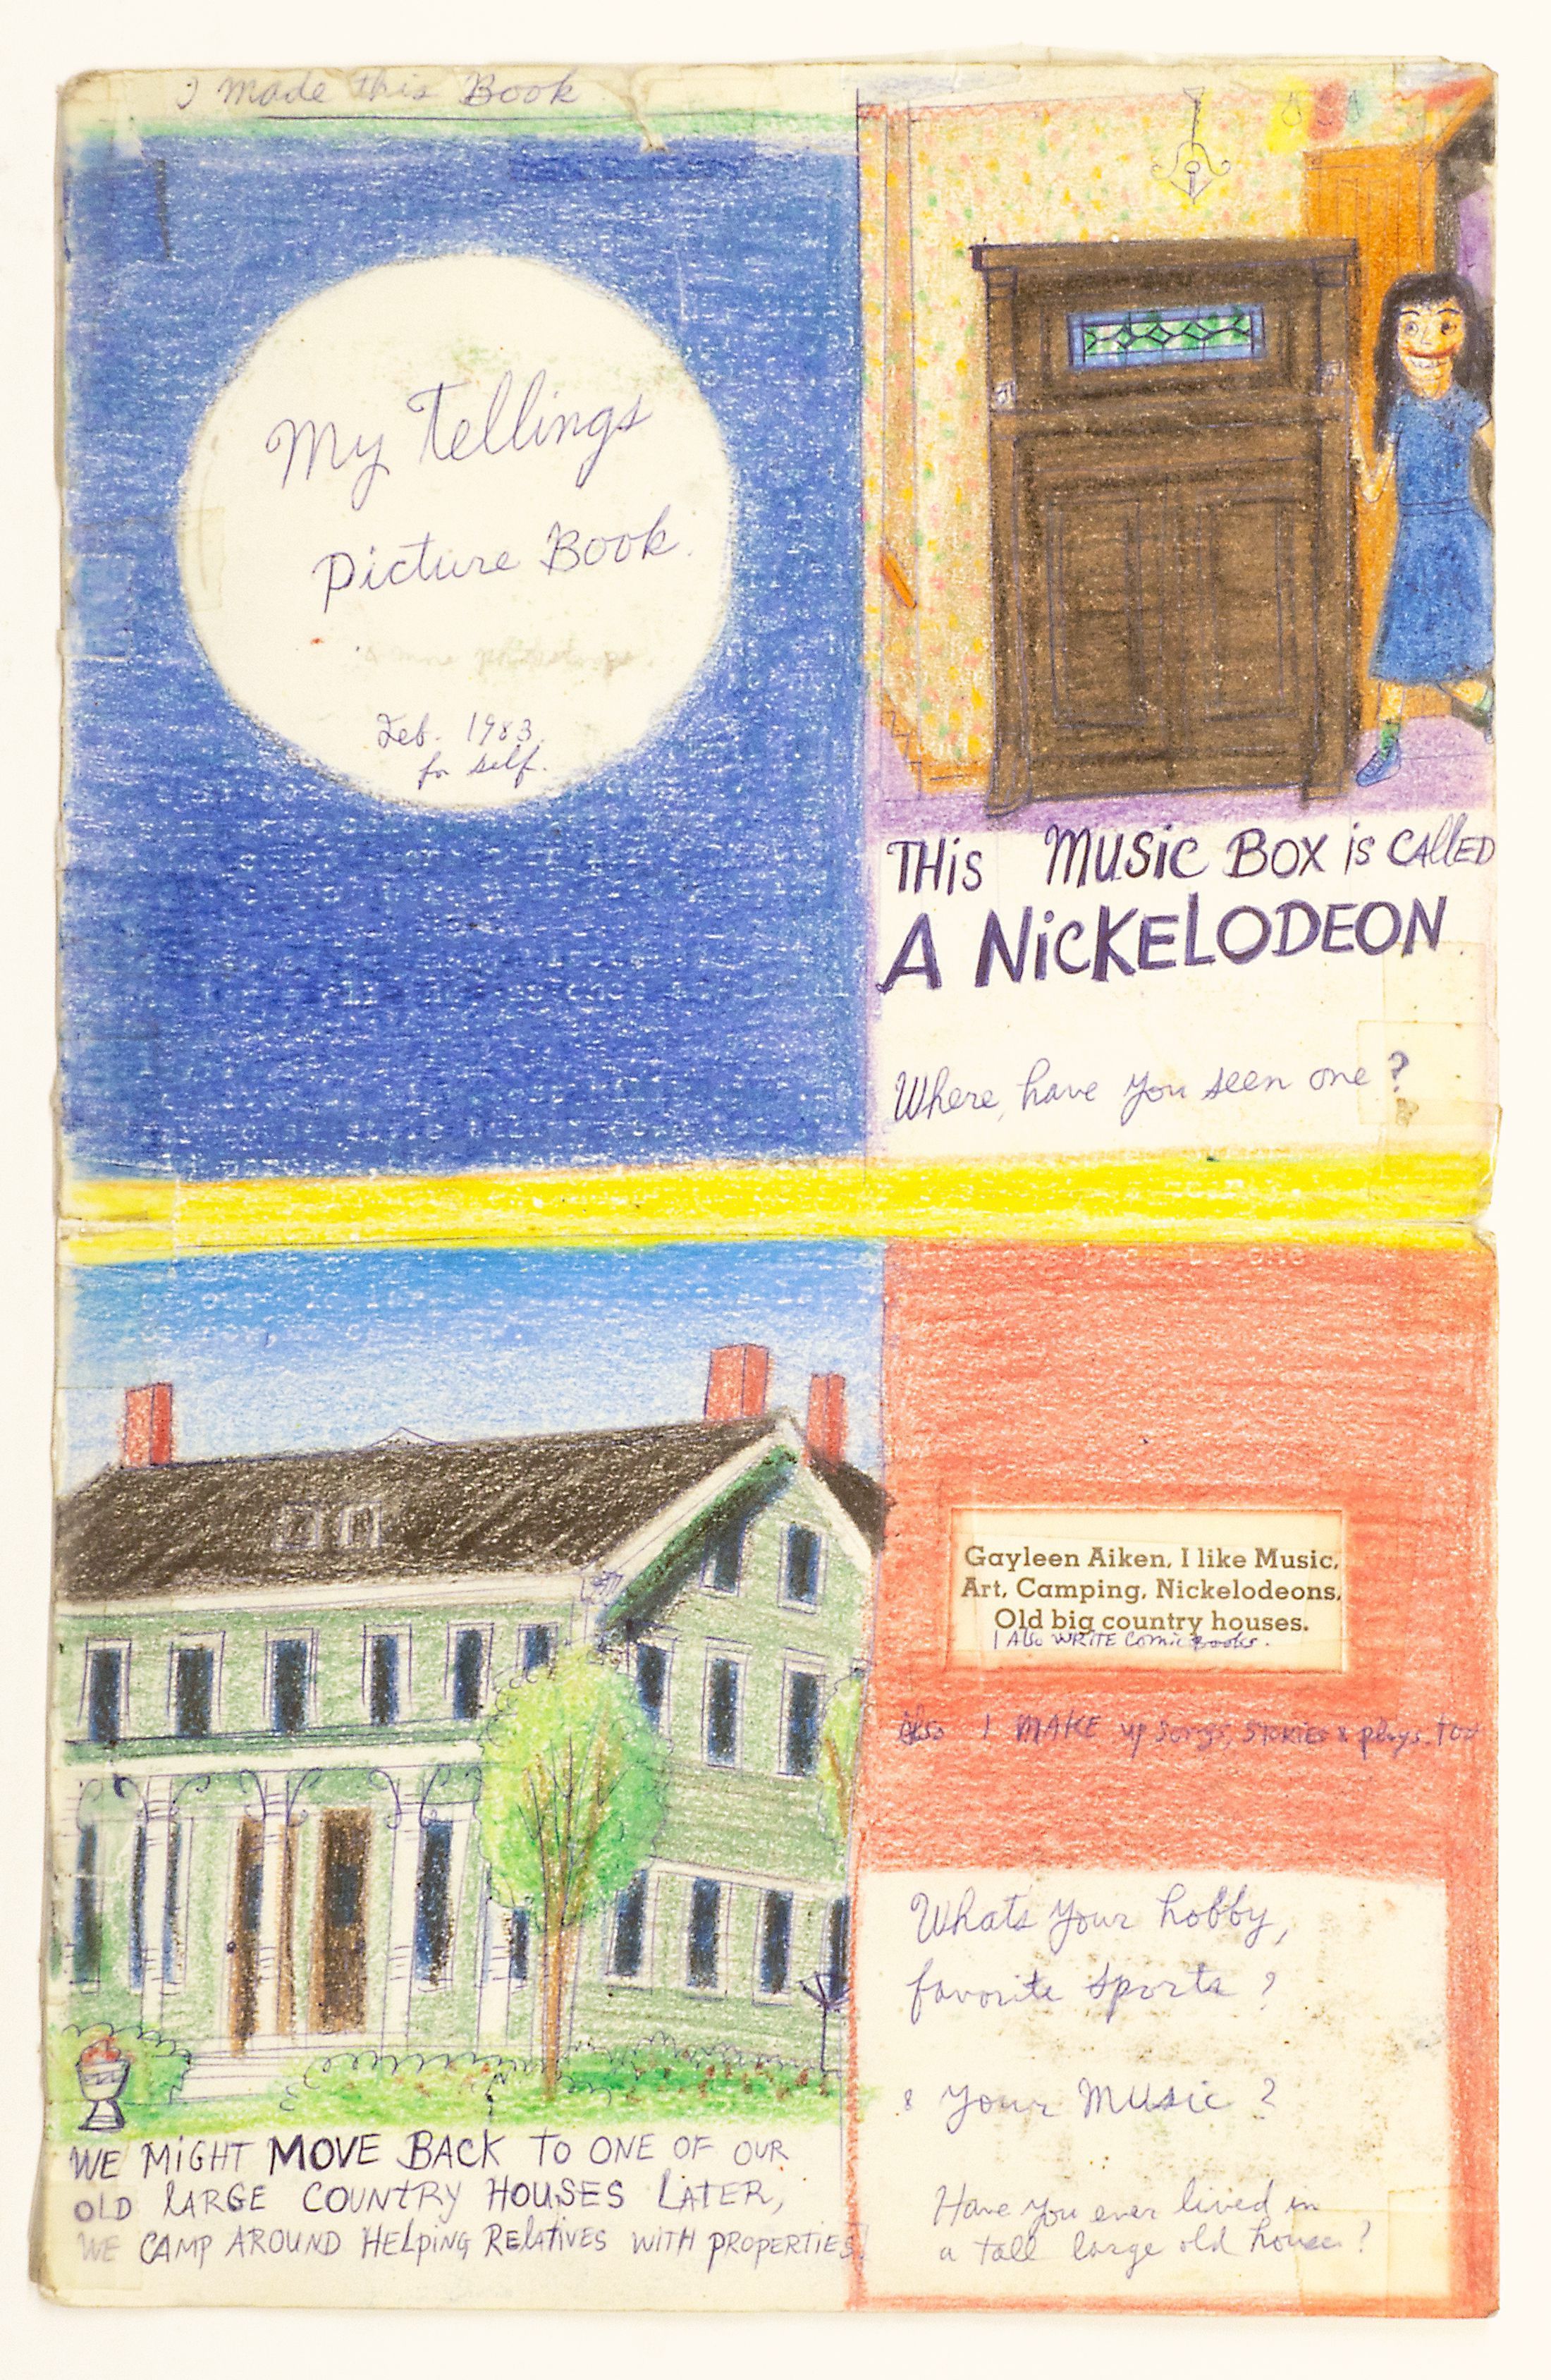 I made this Book
My Tellings
Picture Book.
Feb. 1983.
for self.
THIS MUSIC BOX iS CALLED
A NiCKELODEON
Where, have you seen one?
WE MiGHT MOVE BACK TO ONE OF OUR
OLD LARGE COUNTRY HOUSES LATER,
WE CAMP AROUND HELPiNG RELATIVES WiTH PROPERTIES!
Gayleen Aiken, I like Music,
Art, Camping, Nickelodeons,
Old big country houses.
I Also WRITE Comic Books.
Also I MAKE up Songs, STORIES & plays. too
Whats your hobby,
favorite sports?
& your Music?
Have you ever lived in
a tall large old house?